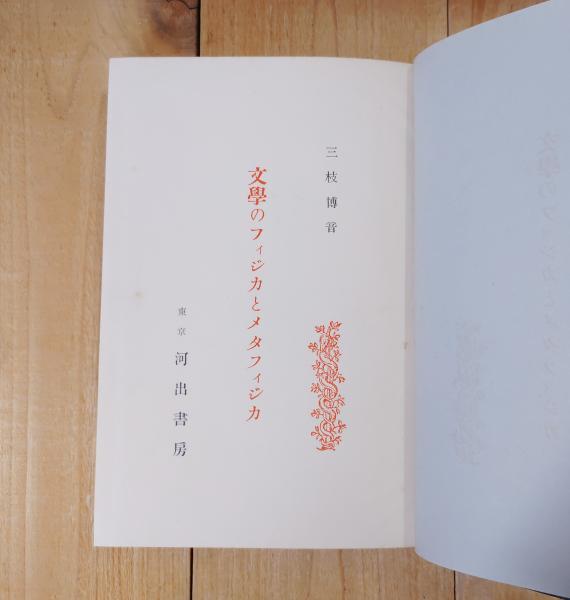 三枝博音
文學のフィジカとメタフィジカ
東京 河出書房